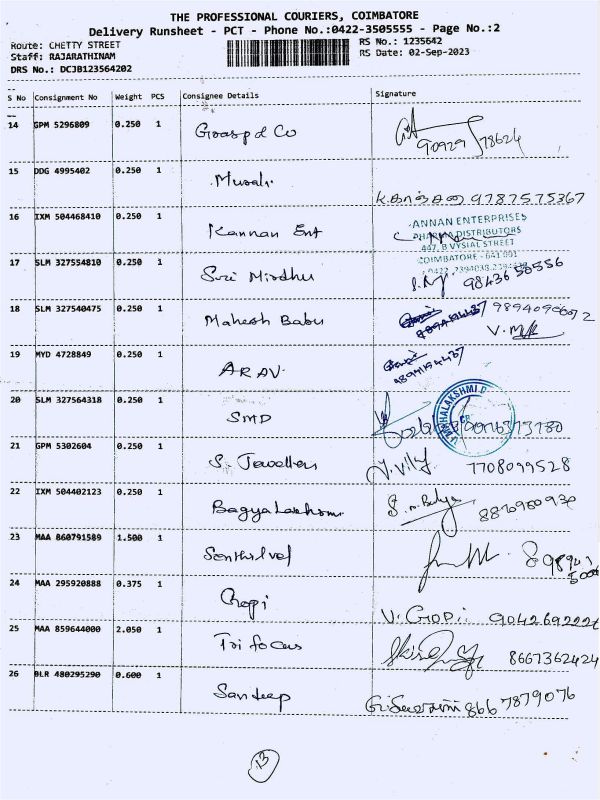 THE PROFESSIONAL COURIERS, COIMBATORE
Delivery Runsheet - PCT - Phone No.:0422-3505555 - Page No.:2
Route: CHETTY STREET RS No.: 1235642
Staff: RAJARATHINAM RS Date: 02-Sep-2023
DRS No.: DCJB123564202
S No Consignment No Weight PCS Consignee Details Signature
14 GPM 5296809 0.250 1
15 DDG 4995402 0.250 1 Murali 9787575367
16 IXM 504468410 0.250 1 Kannan Ent
ANNAN ENTERPRISES
PHARMA DISTRIBUTORS
447, B VYSIAL STREET
COIMBATORE - 641 001
17 SLM 327554810 0.250 1 Sri Mirdhu 9843658556
18 SLM 327540475 0.250 1 Mahesh Babu
19 MYD 4728849 0.250 1 ARAV.
20 SLM 327564318 0.250 1 SMD
21 GPM 5302604 0.250 1 S. Jewellers 7708099528
22 IXM 504402123 0.250 1 Bagyalakshmi
23 MAA 860791589 1.500 1 Senthilvel
24 MAA 295920888 0.375 1 Gopi V. GOPI
25 MAA 859644000 2.050 1 Trifocus 8667362424
26 BLR 480295290 0.600 1 Sandeep 8667879076
13